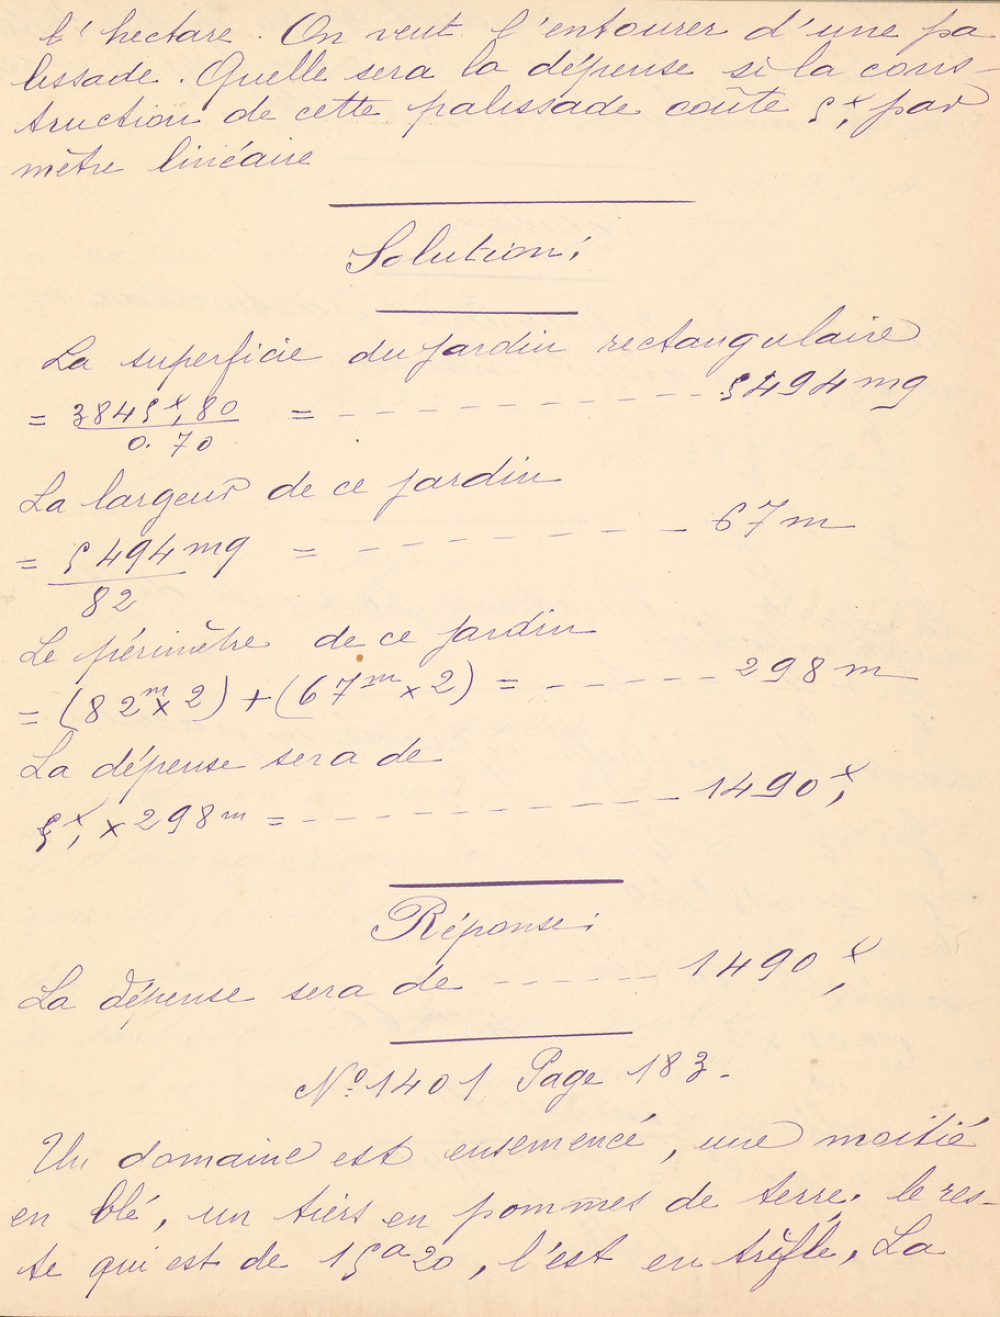 l'hectare. On veut l'entourer d'une pa
lissade. Quelle sera la dépense si la cons-
truction de cette palissade coûte 5f, par
mètre linéaire
Solution;
La superficie du jardin rectangulaire
= 3845f,80 / 0.70 = - - - - - - - - - - - 5494mq
La largeur de ce jardin
= 5494mq / 82 = - - - - - - - - - 67m
Le périmètre de ce jardin
= (82m x 2) + (67m x 2) = - - - - - - 298m
La dépense sera de
5f, x 298m = - - - - - - - - - - - - 1490f,
Réponse:
La dépense sera de - - - - - - 1490f,
No: 1401 Page 183.
Un domaine est ensemencé, une moitié
en blé, un tiers en pommes de terre; le res-
te qui est de 15a20, l'est en trèfle, La